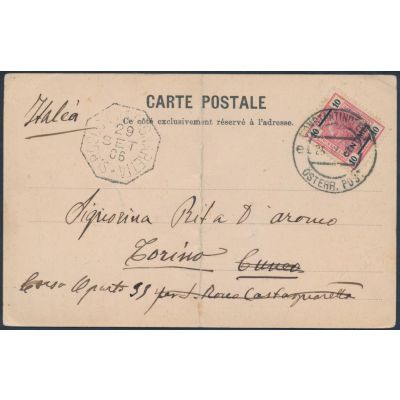 CARTE POSTALE
Ce côté exclusivement réservé à l'adresse.
Italia
29
SET
06
CONSTANTINOPEL
ÖSTERR. POST
10 10
10 CENTIMES 10
Signorina Rita D'aromo
Torino Cuneo
Corso Oporto 33 per S. Rocco Castagnaretta